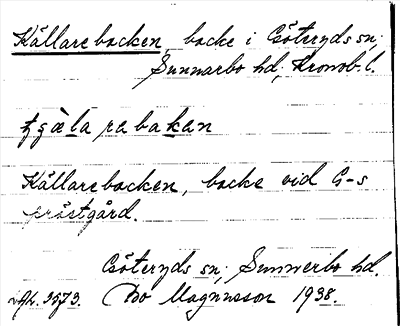 Källarebacken, backe i Göteryds sn;
Sunnerbo hd, Kronob. l.
Källarebacken, backe vid G-s
prästgård.
Göteryds sn; Sunnerbo hd.
Bo Magnusson 1938.